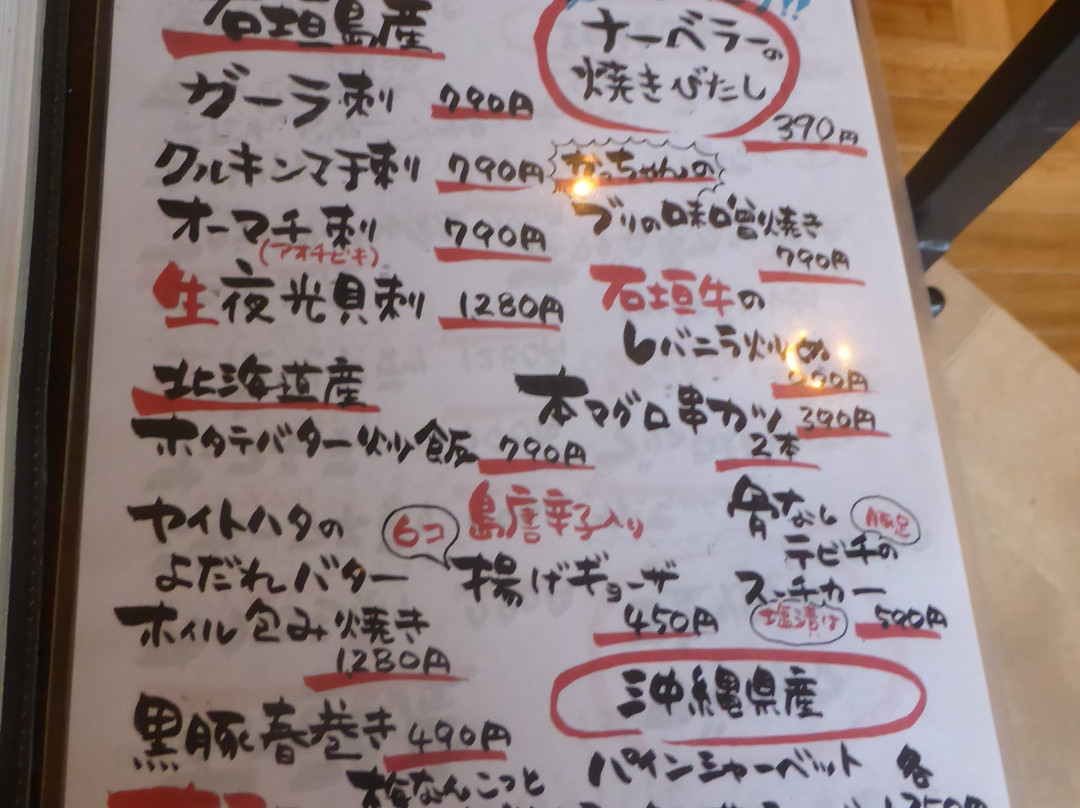 石垣島産
ガーラ刺 790円
クルキンマチ刺 790円
オーマチ刺 790円
(アオチビキ)
生夜光貝刺 1280円
北海道産
ホタテバター炒飯 790円
ヤイトハタの
よだれバター
ホイル包み焼き
1280円
黒豚春巻き 490円
ナーベラーの
焼きびたし
390円
かっちゃんの
ブリの味噌焼き
790円
石垣牛の
レバニラ炒め
本マグロ串カツ 390円
2本
6コ
島唐辛子入り
揚げギョーザ
450円
骨なし
豚足
テビチの
スーチカー
塩漬け
590円
沖縄県産
パインシャーベット 各
梅なんこつと